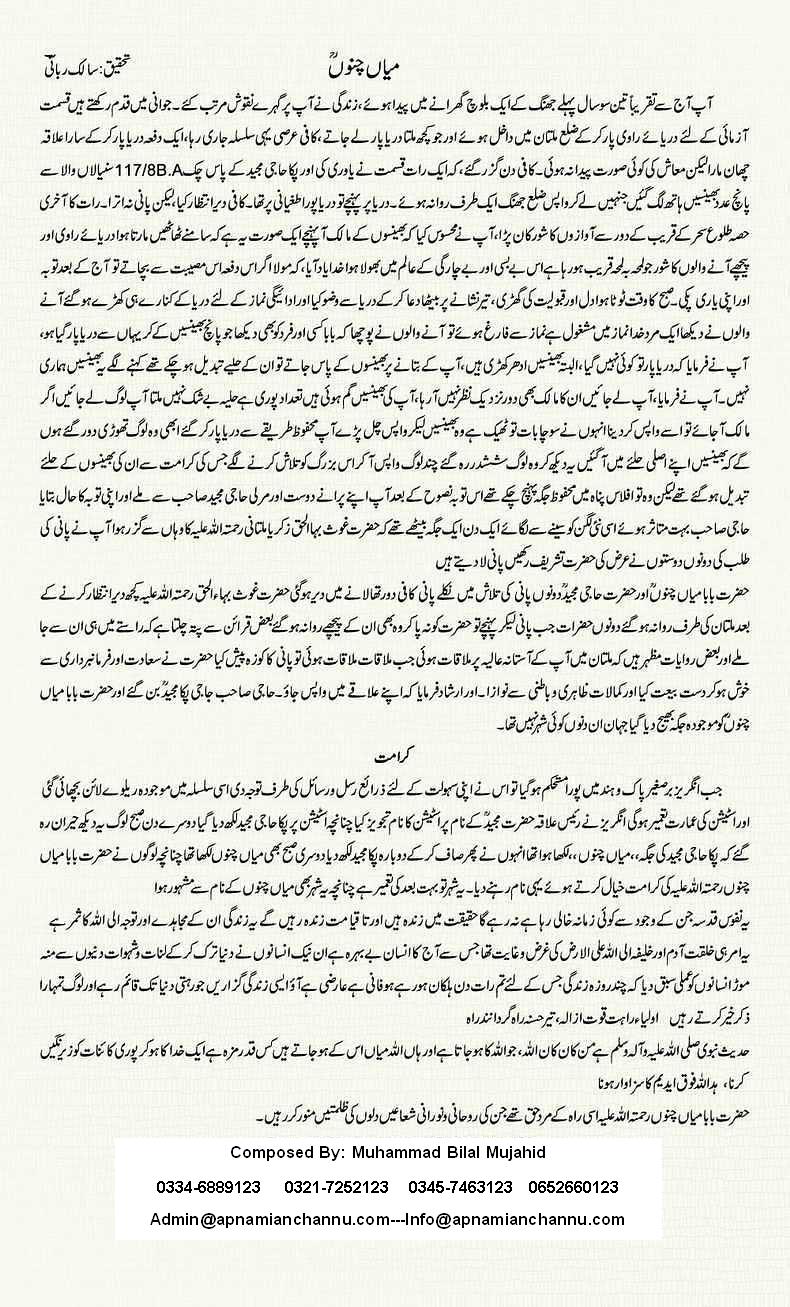 میاں چنوںؒ
تحقیق: سالک ربانی
آپ آج سے تقریباً تین سو سال پہلے جھنگ کے ایک بلوچ گھرانے میں پیدا ہوئے، زندگی نے آپ پر گہرے نقوش مرتب کئے۔ جوانی میں قدم رکھتے ہیں قسمت
آزمائی کے لئے دریائے راوی پار کر کے ضلع ملتان میں داخل ہوئے اور جو کچھ ملتا دریا پار لے جاتے، کافی عرصی یہی سلسلہ جاری رہا، ایک دفعہ دریا پار کر کے سارا علاقہ
چھان مارا لیکن معاش کی کوئی صورت پیدا نہ ہوئی۔ کافی دن گزر گئے، کہ ایک رات قسمت نے یاوری کی اور پکا حاجی مجید کے پاس چک 117/8B.A سنیالاں والا سے
پانچ عدد بھینسیں ہاتھ لگ گئیں جنہیں لے کر واپس ضلع جھنگ ایک طرف روانہ ہوئے۔ دریا پر پہنچے تو دریا پورا طغیانی پر تھا۔ کافی دیر انتظار کیا، لیکن پانی نہ اترا۔ رات کا آخری
حصہ طلوع سحر کے قریب کے دور سے آوازوں کا شور کان پڑا، آپ نے محسوس کیا کہ بھینسوں کے مالک آ پہنچے ایک صورت یہ ہے کہ سامنے ٹھاٹھیں مارتا ہوا دریائے راوی اور
پیچھے آنے والوں کا شور جو لمحہ بہ لمحہ قریب ہو رہا ہے اس بے بسی اور بے چارگی کے عالم میں بھولا ہوا خدا یاد آیا، کہ مولا اگر اس دفعہ اس مصیبت سے بچاتے تو آج کے بعد توبہ
اور اپنی یاری پکی۔ صبح کا وقت ٹوٹا ہوا دل اور قبولیت کی گھڑی، تیر نشانے پر بیٹھا دعا کر کے دریا سے وضو کیا اور ادائیگی نماز کے لئے دریا کے کنارے ہی کھڑے ہو گئے آنے
والوں نے دیکھا ایک مرد خدا نماز میں مشغول ہے نماز سے فارغ ہوئے تو آنے والوں نے پوچھا کہ بابا کسی اور فرد کو بھی دیکھا جو پانچ بھینسیں کے کر یہاں سے دریا پار گیا ہو،
آپ نے فرمایا کہ دریا پار تو کوئی نہیں گیا، البتہ بھینسیں ادھر کھڑی ہیں، آپ کے بتانے پر بھینسوں کے پاس جاتے تو ان کے حلیے تبدیل ہو چکے تھے کہنے لگے یہ بھینسیں ہماری
نہیں۔ آپ نے فرمایا، آپ لے جائیں ان کا مالک بھی دور نزدیک نظر نہیں آ رہا، آپ کی بھینسیں گم ہوئی ہیں تعداد پوری ہے حلیہ بے شک نہیں ملتا آپ لوگ لے جائیں اگر
مالک آ جائے تو اسے واپس کر دینا انہوں نے سوچا بات تو ٹھیک ہے وہ بھینسیں لیکر واپس چل پڑے آپ محفوظ طریقے سے دریا پار کر گئے ابھی وہ لوگ تھوڑی دور گئے ہوں
گے کہ بھینسیں اپنے اصلی حلئے میں آ گئیں یہ دیکھ کر وہ لوگ ششدر رہ گئے چند لوگ واپس آ کر اس بزرگ کو تلاش کرنے لگے جس کی کرامت سے ان کی بھینسوں کے حلئے
تبدیل ہو گئے تھے لیکن وہ تو افلاس پناہ میں محفوظ جگہ پہنچ چکے تھے اس توبہ نصوح کے بعد آپ اپنے پرانے دوست اور مربی حاجی مجید صاحب سے ملے اور اپنی توبہ کا حال بتایا
حاجی صاحب بہت متاثر ہوئے اسی نئی لگن کو سینے سے لگائے ایک دن ایک جگہ بیٹھے تھے کہ حضرت غوث بہاالحق زکریا ملتانی رحمتہ اللہ علیہ کا وہاں سے گزر ہوا آپ نے پانی کی
طلب کی دونوں دوستوں نے عرض کی حضرت تشریف رکھیں پانی لا دیتے ہیں
حضرت بابا میاں چنوںؒ اور حضرت حاجی مجیدؒ دونوں پانی کی تلاش میں نکلے پانی کافی دور تھا لانے میں دیر ہو گئی حضرت غوث بہاء الحق رحمتہ اللہ علیہ کچھ دیر انتظار کرنے کے
بعد ملتان کی طرف روانہ ہو گئے دونوں حضرات جب پانی لیکر پہنچے تو حضرت کو نہ پا کر وہ بھی ان کے پیچھے روانہ ہو گئے بعض قرائن سے پتہ چلتا ہے کہ راستے میں ہی ان سے جا
ملے اور بعض روایات مظہر ہیں کہ ملتان میں آپ کے آستانہ عالیہ پر ملاقات ہوئی جب ملاقات ملاقات ہوئی تو پانی کا کوزہ پیش کیا حضرت نے سعادت اور فرمانبرداری سے
خوش ہو کر دست بیعت کیا اور کمالات ظاہری و باطنی سے نوازا۔ اور ارشاد فرمایا کہ اپنے علاقے میں واپس جاؤ۔ حاجی صاحب حاجی پکا مجیدؒ بن گئے اور حضرت بابا میاں
چنوںؒ کو موجودہ جگہ بھیج دیا گیا جہان ان دنوں کوئی شہر نہیں تھا۔
کرامت
جب انگریز برصغیر پاک و ہند میں پورا مستحکم ہو گیا تو اس نے اپنی سہولت کے لئے ذرائع رسل و رسائل کی طرف توجہ دی اسی سلسلہ میں موجودہ ریلوے لائن بچھائی گئی
اور اسٹیشن کی عمارت تعمیر ہوگی انگریز نے رئیس علاقہ حضرت مجیدؒ کے نام پر اسٹیشن کا نام تجویز کیا چنانچہ اسٹیشن پر پکا حاجی مجید لکھ دیا گیا دوسرے دن صبح لوگ یہ دیکھ حیران رہ
گئے کہ پکا حاجی مجید کی جگہ ،،میاں چنوں،، لکھا ہوا تھا انہوں نے پھر صاف کر کے دوبارہ پکا مجید لکھ دیا دوسری صبح بھی میاں چنوں لکھا تھا چنانچہ لوگوں نے حضرت بابا میاں
چنوں رحمتہ اللہ علیہ کی کرامت خیال کرتے ہوئے یہی نام رہنے دیا۔ یہ شہر تو بہت بعد کی تعمیر ہے چنانچہ یہ شہر بھی میاں چنوں کے نام سے مشہور ہوا
یہ نفوس قدسہ جن کے وجود سے کوئی زمانہ خالی رہا ہے نہ رہے گا حقیقت میں زندہ ہیں اور تا قیامت زندہ رہیں گے یہ زندگی ان کے مجاہدے اور توجہ الی اللہ کا ثمر ہے
یہ امر ہی خلقت آدم اور خلیفہ الی اللہ علی الارض کی غرض و غایت تھا جس سے آج کا انسان بے بہرہ ہے ان نیک انسانوں نے دنیا ترک کر کے لذات و شہوات دنیوں سے منہ
موڑ انسانوں کو عملی سبق دیا کہ چند روزہ زندگی جس کے لئے تم رات دن ہلکان ہو رہے ہو فانی ہے عارضی ہے آؤ ایسی زندگی گزاریں جو رہتی دنیا تک قائم رہے اور لوگ تمہارا
ذکر خیر کرتے رہیں اولیاء راہت قوت از الہ، تیر حسنہ راہ گردانند راہ
حدیث نبوی صلی اللہ علیہ و آلہ وسلم ہے من کان کان اللہ، جو اللہ کا ہو جاتا ہے اور ہاں اللہ میاں اس کے ہو جاتے ہیں کس قدر مزہ ہے ایک خدا کا ہو کر پوری کائنات کو زیر نگیں
کرنا، ید اللہ فوق ایدیم کا سزاوار ہونا
حضرت بابا میاں چنوں رحمتہ اللہ علیہ اسی راہ کے مرد حق تھے جن کی روحانی و نورانی شعاعیں دلوں کی ظلمتیں منور کر رہیں۔
Composed By: Muhammad Bilal Mujahid
0334-6889123 0321-7252123 0345-7463123 0652660123
Admin@apnamianchannu.com---Info@apnamianchannu.com